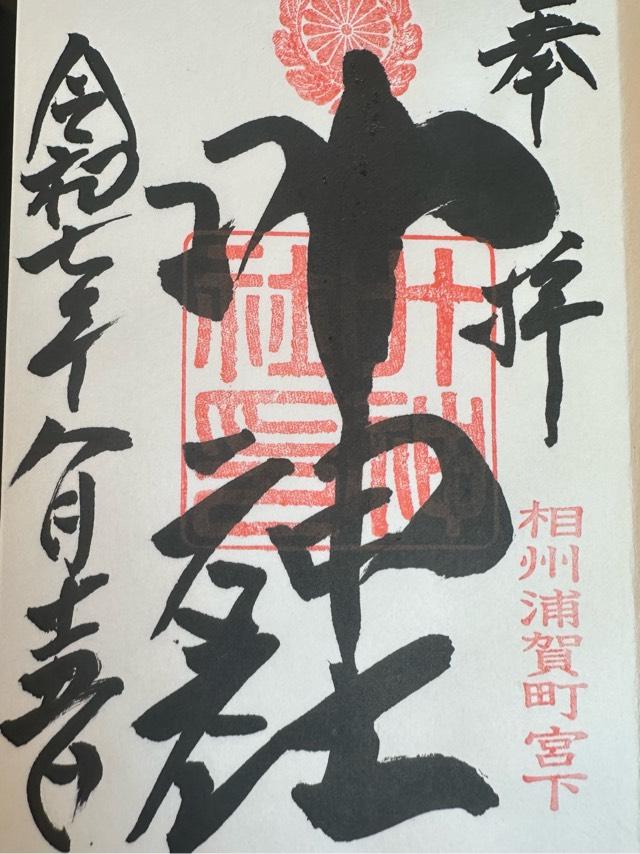 奉拝
相州浦賀町宮下
叶神社
叶神社印
令和七年八月十五日